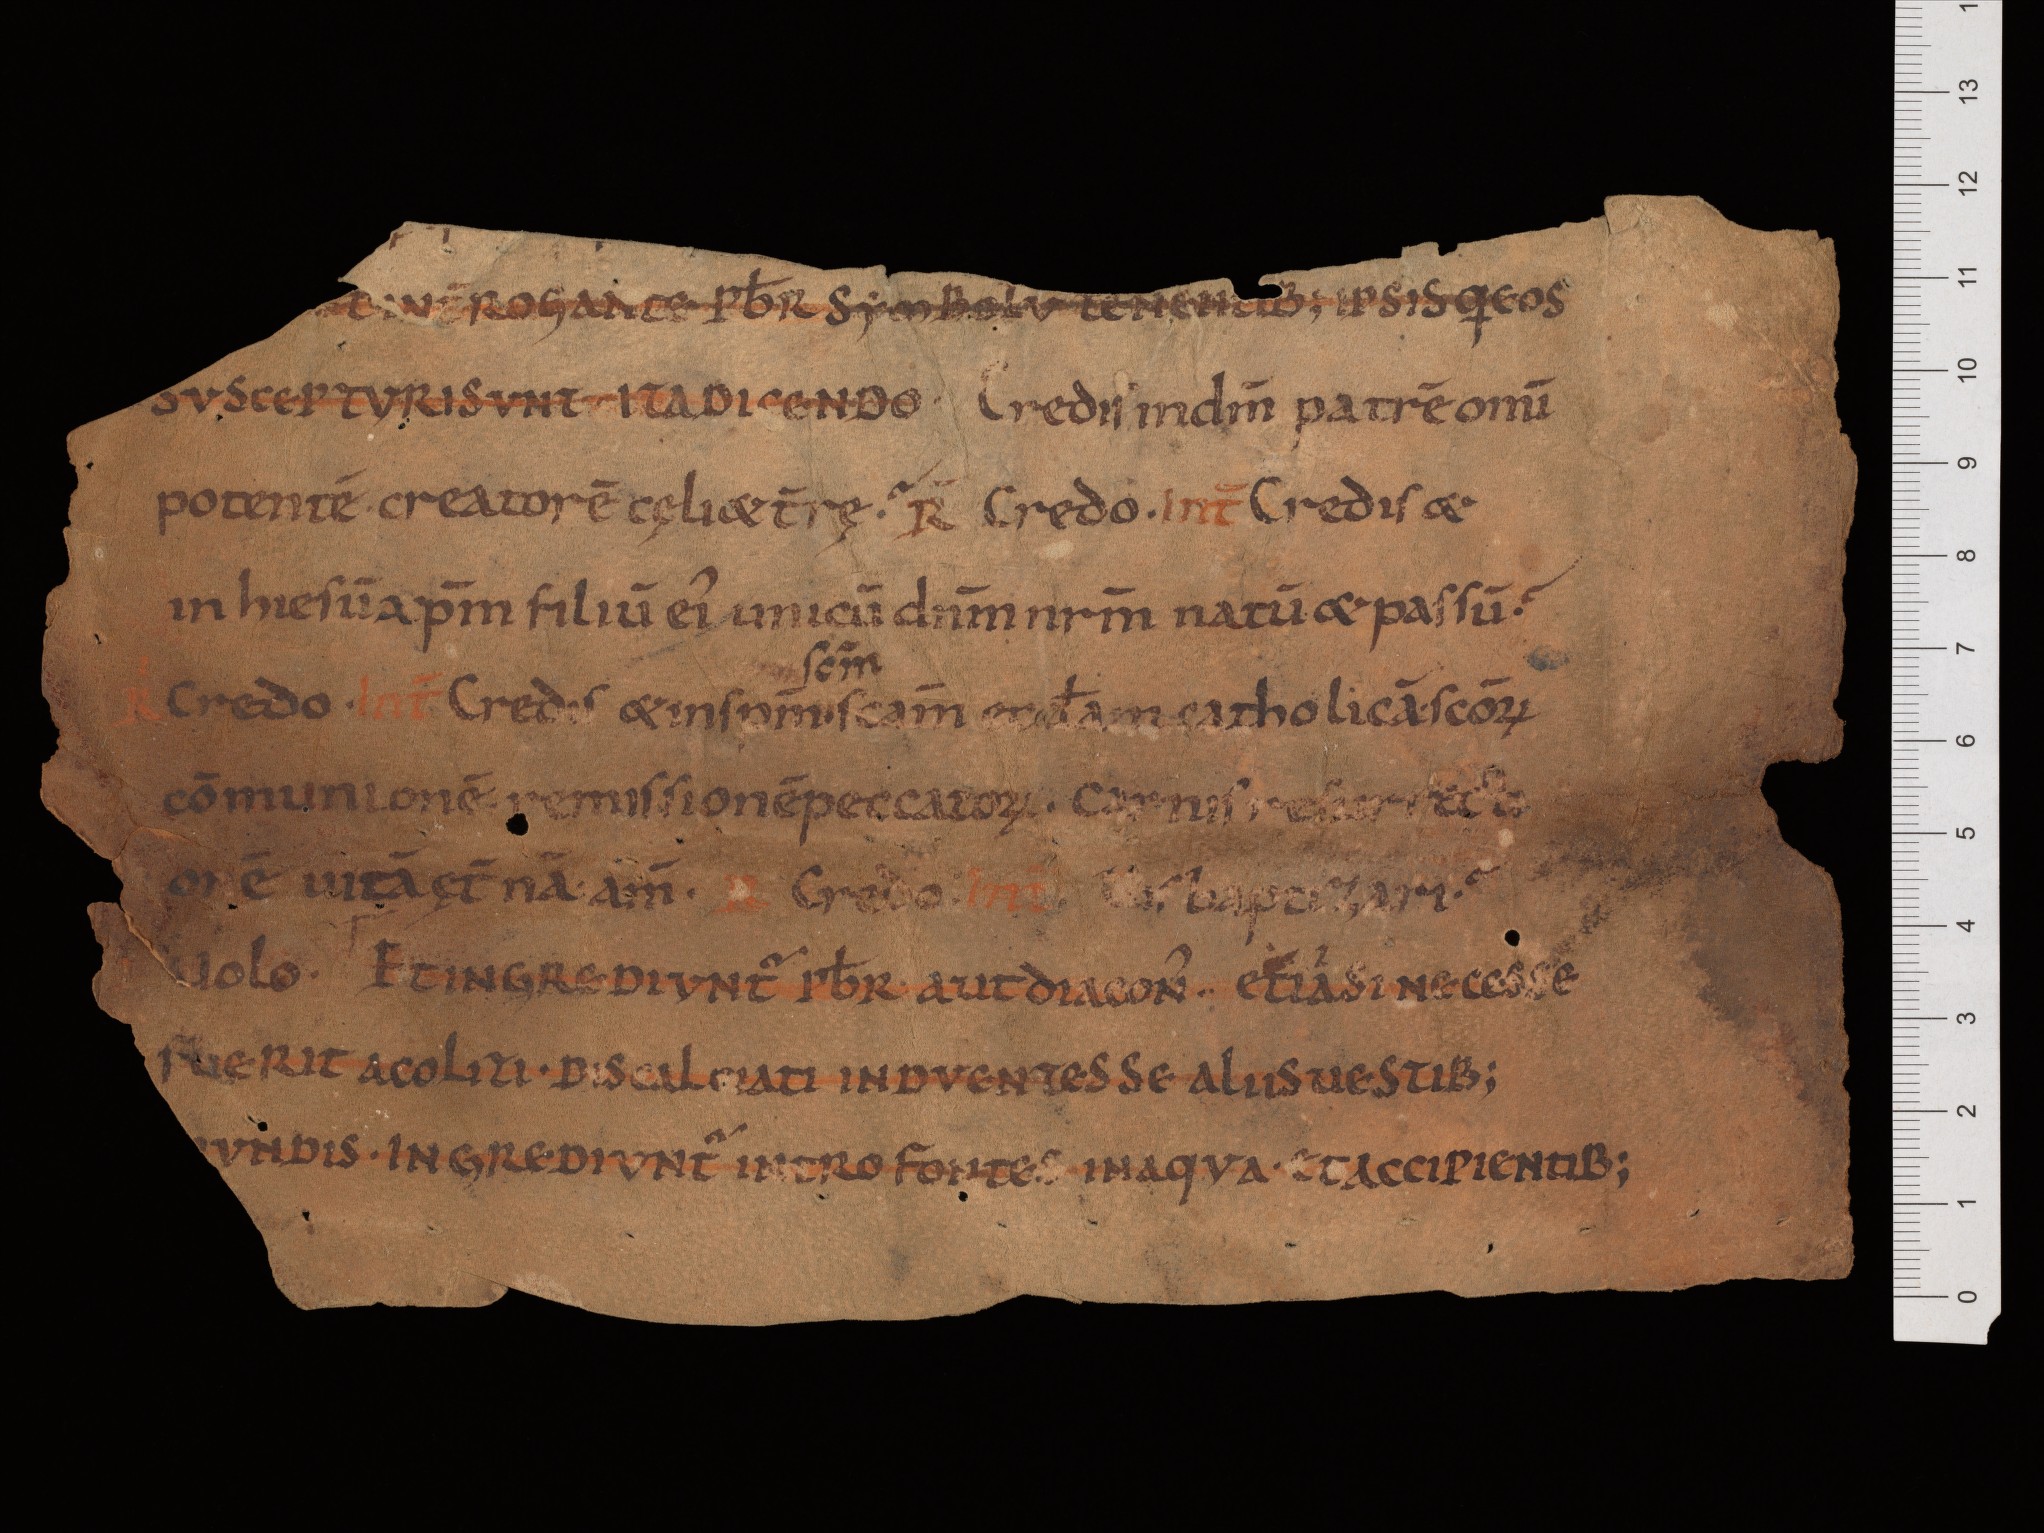 & INT̄ROGANTE PƀR SYMBOLV TENENTIB; IPSISQ̣EOS
SUSCEPTVRISVNT ITADICENDO. Credis indm̄ patrē omī
potentē creatorē cęli & t̄rę. R̄ Credo. Int̄ Credis &
in hiesūxp̄m filiū ei' unicū dnm̄ nrm̄ natū & passū.
R̄ Credo. Int̄ Credis & inspm̄ scm̄ scam̄ eccƚam catholicā. scōꝝ
cōmunionē. remissionē peccatoꝝ. Carnis resurrecti
onē uitā ęt̄nā. am̄. R̄ Credo. Int̄. Uis baptizari.
Uolo. ETINGREDIVNT̄ PƀR AUTDIACON'. ETIĀSINECESSE
FUERIT ACOLITI. DISCALCIATI INDVENTESSE ALIISUESTIB;
MVNDIS. INGREDIVNT̄ INTRO FONTES INAQVA. ETACCIPIENTIB;